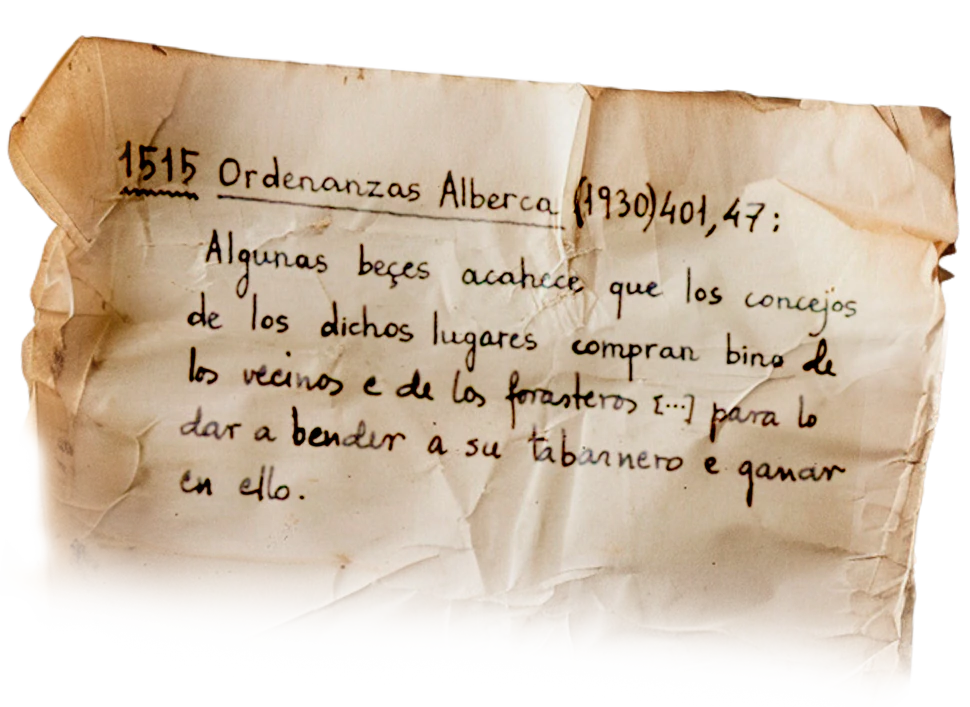 1515 Ordenanzas Alberca (1930)401, 47:
Algunas beçes acahece que los concejos
de los dichos lugares compran bino de
los vecinos e de los forasteros [...] para lo
dar a bender a su tabarnero e ganar
en ello.